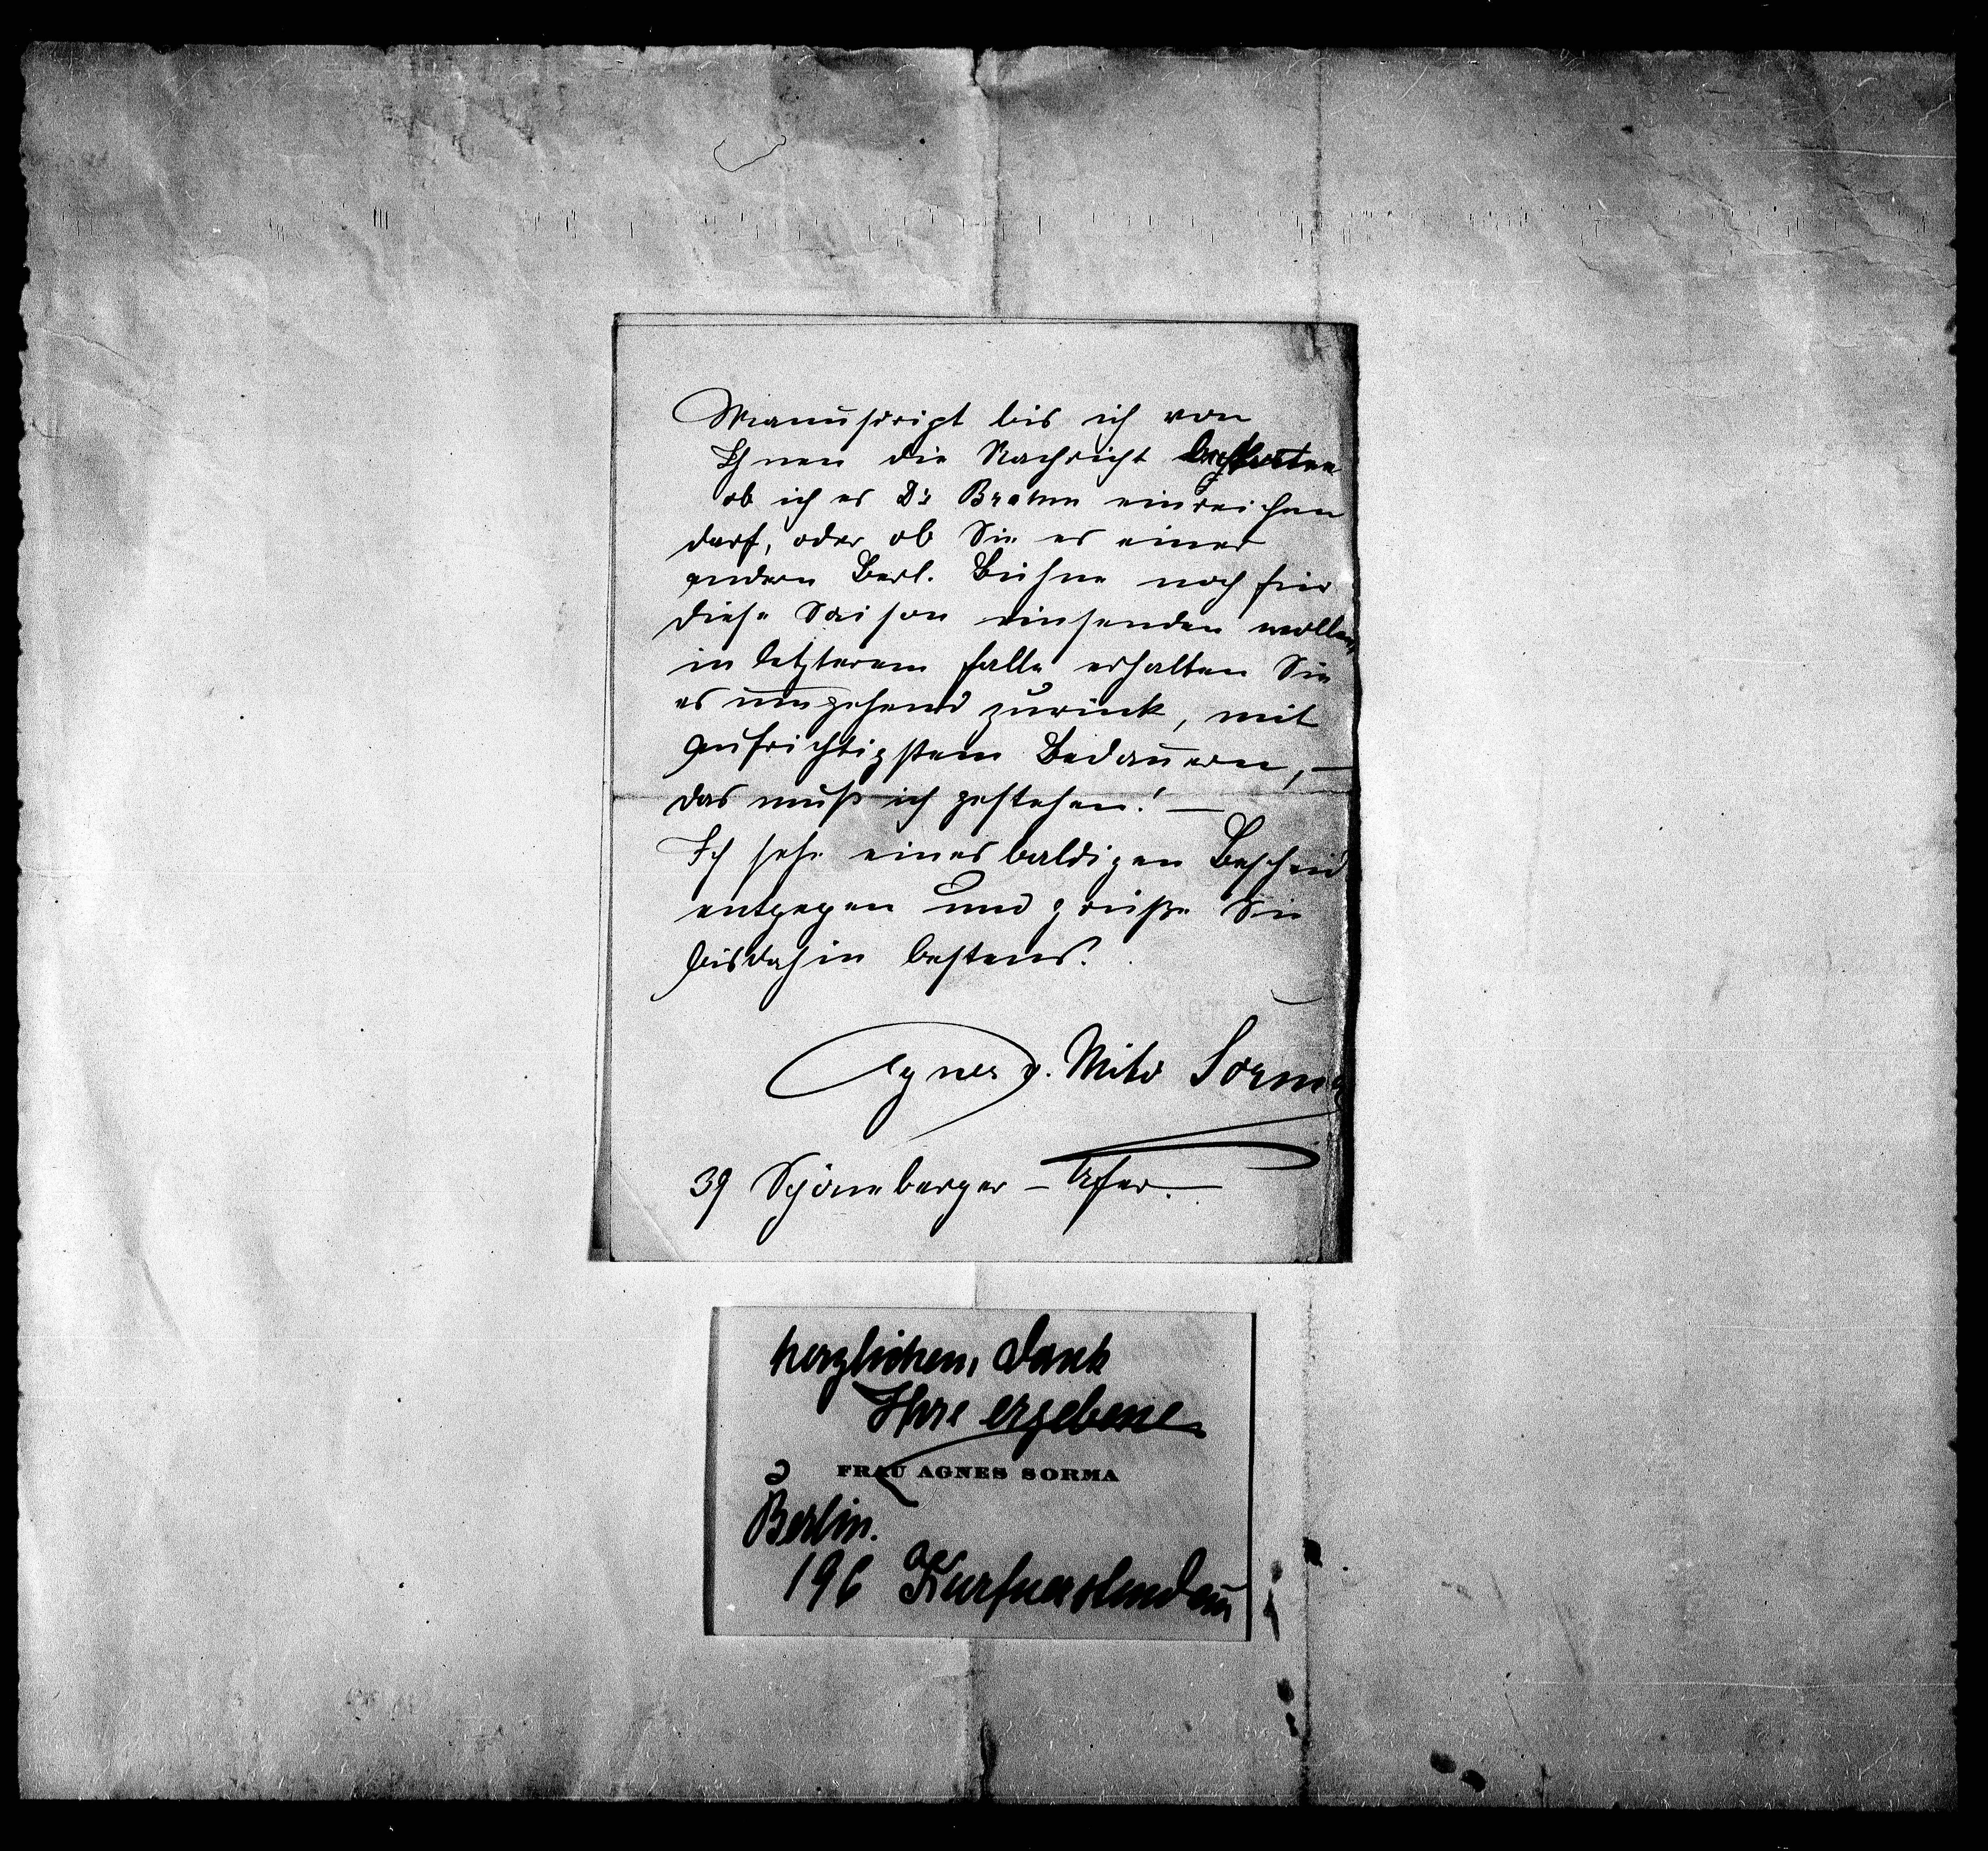 Manuscript bis ich von
Ihnen die Nachricht
ob ich es Dr Brahm einreichen
darf, oder ob Sie es einer
andern Berl. Bühne noch für
diese Saison einsenden wollen,
in letzterem Falle erhalten Sie
es umgehend zurück, mit
aufrichtigstem Bedauern, –
das muß ich gestehen! –
Ich sehe eines baldigen Bescheid
entgegen und grüße Sie
bis dahin bestens.
Agnes v. Mito Sorma
39 Schöneberger – Ufer. –
herzlichen Dank
Ihre ergebene
FRAU AGNES SORMA
Berlin.
196 Kurfuerstendam̄